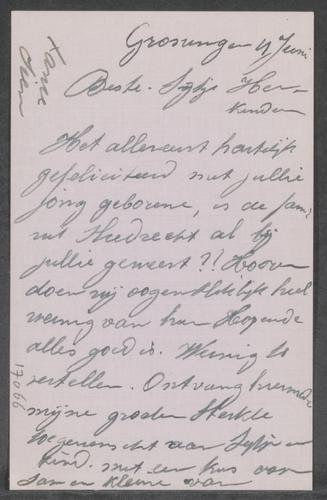 Groningen 11 Juni
Beste Sijtje Her-
kinden
Het allereerst hartelijk
gefeliciteerd met jullie
jong geborene, is de fam,
uit Sliedrecht al bij
jullie geweest?? Hooren
doen wij oogenklikelijk heel
weinig van hun Hopende
alles goed is. Weinig te
vertellen. Ontvang hiermede
mijne groeten Sterkte
toegewenscht aan Sijtje en
kind. met een kus van
Sam en kleine van
Tante
17066